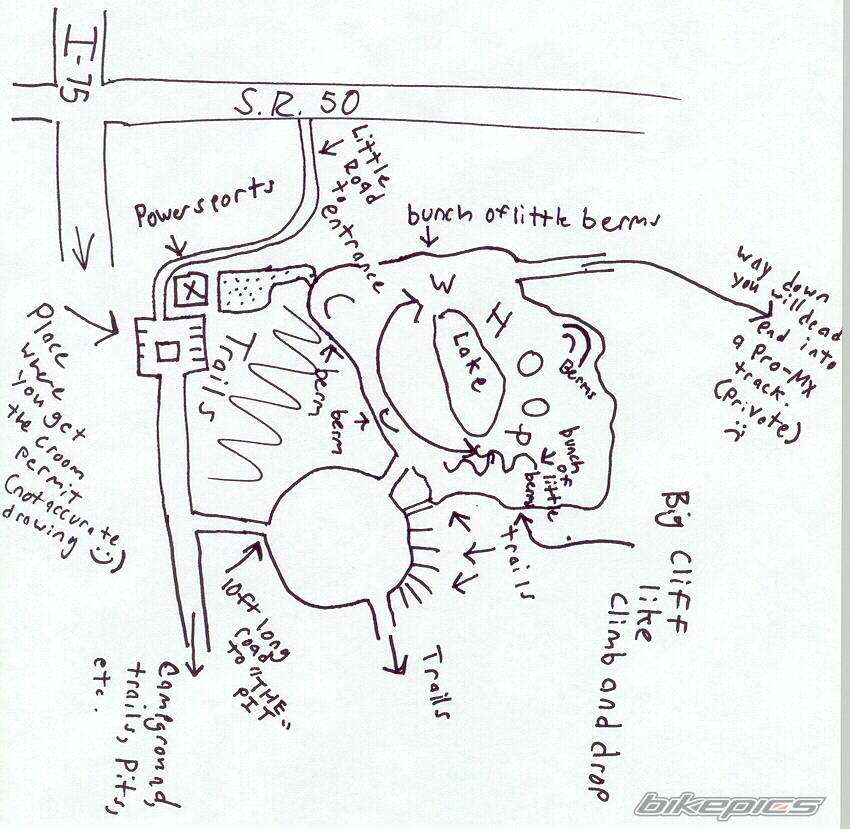 I-75
S.R. 50
Little
Road
to
entrance
Powersports
bunch of little berms
way down
you will dead
end into
a pro-MX
track.
(private)
:(
X
W
H
O
O
P
Lake
Berms
Trails
berm
berm
bunch
of
little
berms
Place
where
you get
the croom
permit
(not accurate
drawing :))
trails
Big Cliff
like
climb and drop
10ft long
road
to "THE
PIT"
Trails
Campground,
trails, Pits,
etc.
bikepics